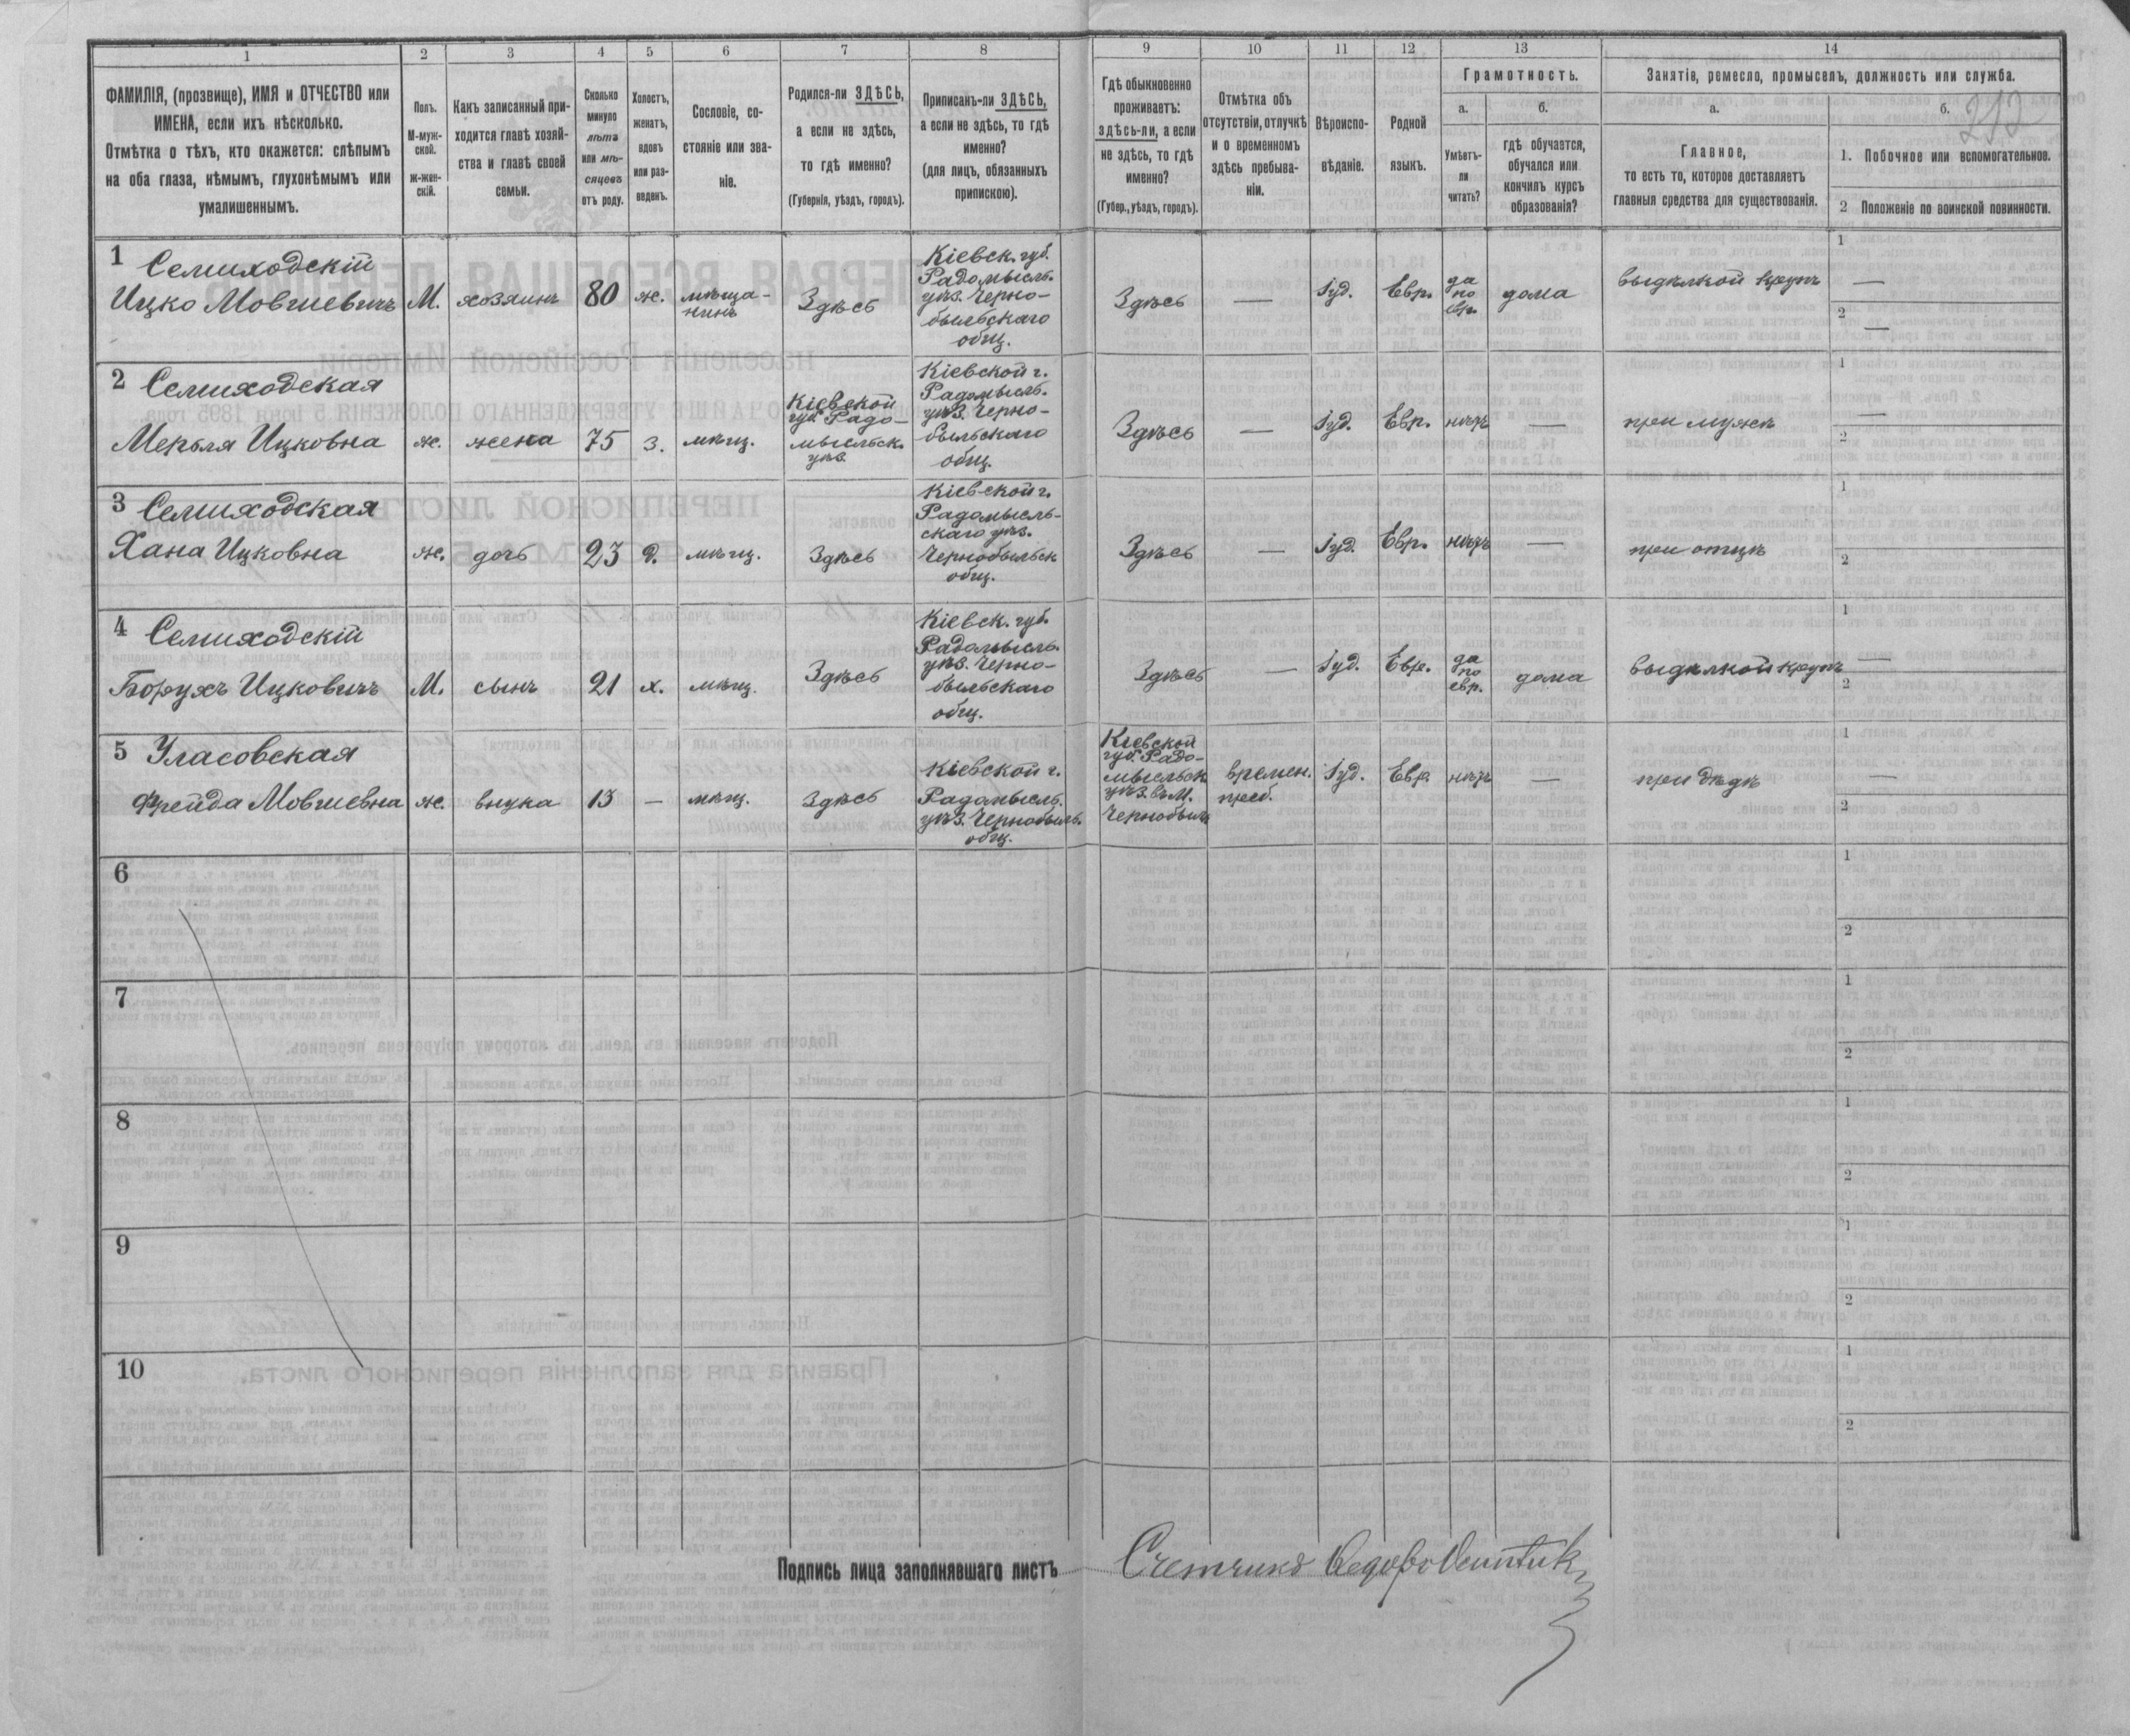 1 2 3 4 5 6 7 8 9 10 11 12 13 14
ФАМИЛІЯ, (прозвище), ИМЯ и ОТЧЕСТВО или
ИМЕНА, если ихъ нѣсколько.
Отмѣтка о тѣхъ, кто окажется: слѣпымъ
на оба глаза, нѣмымъ, глухонѣмымъ или
умалишеннымъ.
Полъ.
М-муж-
ской.
Ж-жен-
скій.
Какъ записанный при-
ходится главѣ хозяй-
ства и главѣ своей
семьи.
Сколько
минуло
лѣтъ
или мѣ-
сяцевъ
отъ роду.
Холостъ,
женатъ,
вдовъ
или раз-
веденъ.
Сословіе, со-
стояніе или зва-
ніе.
Родился-ли ЗДѢСЬ,
а если не здѣсь,
то гдѣ именно?
(Губернія, уѣздъ, городъ).
Приписанъ-ли ЗДѢСЬ,
а если не здѣсь, то гдѣ
именно?
(для лицъ, обязанныхъ
припискою).
Гдѣ обыкновенно
проживаетъ:
здѣсь-ли, а если
не здѣсь, то гдѣ
именно?
(Губер., уѣздъ, городъ).
Отмѣтка объ
отсутствіи, отлучкѣ
и о временномъ
здѣсь пребыва-
ніи.
Вѣроиспо-
вѣданіе.
Родной
языкъ.
Грамотность.
а.
Умѣетъ-
ли
читать?
б.
гдѣ обучается,
обучался или
кончилъ курсъ
образованія?
Занятіе, ремесло, промыселъ, должность или служба.
а.
Главное,
то есть то, которое доставляетъ
главныя средства для существованія.
б.
1. Побочное или вспомогательное.
2 Положеніе по воинской повинности.
1 Семиходскій
Ицко Мовшевичъ
М.
хозяинъ
80
ж.
мѣща-
нинъ
Здѣсь
Кіевск. губ.
Радомысль.
уѣз. Черно-
быльскаго
общ.
Здѣсь
—
Іуд.
Евр.
да
по
евр.
дома
выдѣлкой крупъ
1
—
2
—
2 Семиходская
Меръля Ицковна
ж.
жена
75
з.
мѣщ.
Кіевской
губ. Радо-
мысльск.
уѣз.
Кіевской г.
Радомысль.
уѣз. Черно-
быльскаго
общ.
Здѣсь
—
Іуд.
Евр.
нѣтъ
—
при мужѣ
1
—
2
3 Семиходская
Хана Ицковна
ж.
дочь
23
д.
мѣщ.
Здѣсь
Кіевской г.
Радомысль-
скаго уѣз.
Чернобыльск
общ.
Здѣсь
—
Іуд.
Евр.
нѣтъ
—
при отцѣ
1
2
4 Семиходскій
Борухъ Ицковичъ
М.
сынъ
21
х.
мѣщ.
Здѣсь
Кіевск. губ.
Радомысль.
уѣз. Черно-
быльскаго
общ.
Здѣсь
—
Іуд.
Евр.
да
по
евр.
дома
выдѣлкой крупъ
1
—
2
5 Уласовская
Фрейда Мовшевна
ж.
внука
13
—
мѣщ.
Здѣсь
Кіевской г.
Радомысль.
уѣз. Чернобыль.
общ.
Кіевской
губ. Радо-
мысльск
уѣз. въ М.
Чернобыль
времен.
преб.
Іуд.
Евр.
нѣтъ
—
при дѣдѣ
1
—
2
6
1
2
7
1
2
8
1
2
9
1
2
10
1
2
Подпись лица заполнявшаго листъ
Счетчикъ